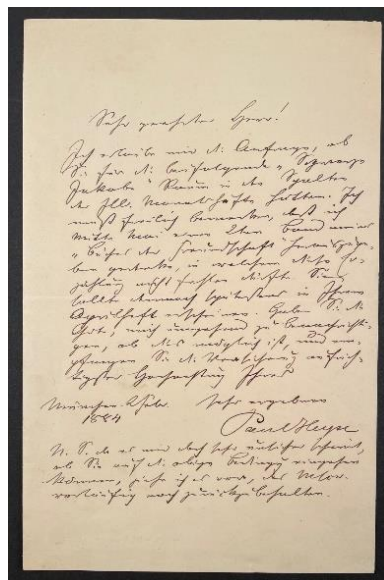 Sehr geehrter Herr!
Ich erlaube mir die Anfrage, ob
Sie für die beifolgende "Schwarze
Jakobe" Raum in den Spalten
der Ill. Monatshefte hätten. Ich
muß freilich bemerken, daß ich
Mitte Mai einen 2ten Band meines
"Buches der Freundschaft" herauszuge-
ben gedenke, in welchem diese Er-
zählung nicht fehlen dürfte. Sie
sollte demnach spätestens in Ihrem
Aprilheft erscheinen. Haben Sie die
Güte, mich umgehend zu benachrichti-
gen, ob dies möglich ist, und em-
pfangen Sie die Versicherung aufrich-
tigster Hochachtung Ihres
München. 2 Febr. sehr ergebenen
1884
Paul Heyse
N. S. da es mir doch sehr unsicher scheint,
ob Sie auf die obige Bedingung eingehen
können, ziehe ich es vor, das
vorläufig noch zurückzubehalten.